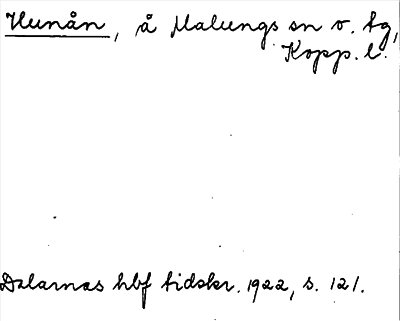 Hunån, å Malungs sn v. tg,
Kopp. l.
Dalarnas hbf tidskr. 1922, s. 121.